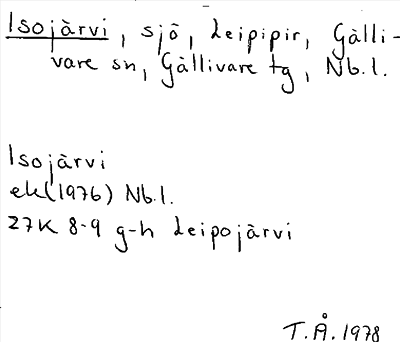 Isojärvi, sjö, Leipipir, Gälli-
vare sn, Gällivare tg, Nb.l.
Isojärvi
ek(1976) Nb.l.
27K 8-9 g-h Leipojärvi
T.Å. 1978